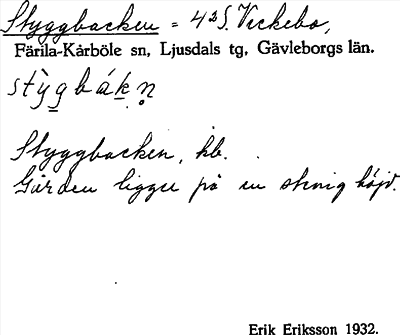 Styggbacken = 42 S. Veckebo,
Färila-Kårböle sn, Ljusdals tg, Gävleborgs län.
stỳgbákn̥
Styggbacken, hb.
Gården ligger på en stenig höjd.
Erik Eriksson 1932.